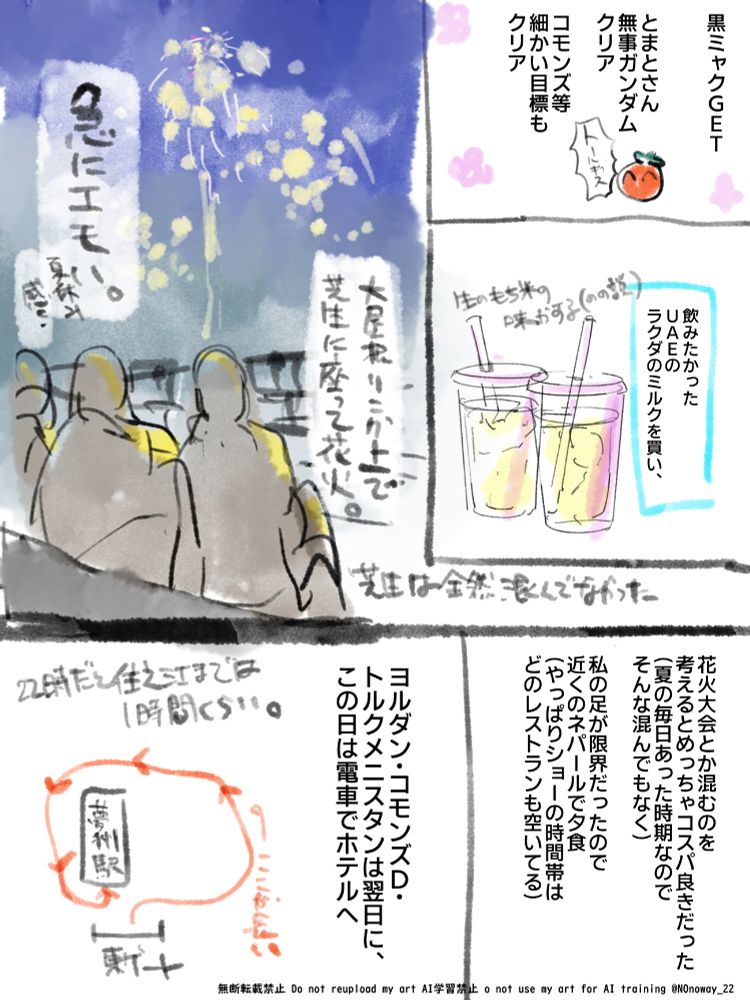 黒ミャクGET
とまとさん
無事ガンダム
クリア
コモンズ等
細かい目標も
クリア
トールギス
急にエモい。
夏休み
感…
大屋根リング上で
芝生に座って花火。
飲みたかった
UAEの
ラクダのミルクを買い、
生のもち米の
味がする(のの説)
芝生は全然混んでなかった
花火大会とか混むのを
考えるとめっちゃコスパ良きだった
(夏の毎日あった時期なので
そんな混んでもなく)
私の足が限界だったので
近くのネパールで夕食
(やっぱりショーの時間帯は
どのレストランも空いてる)
ヨルダン・コモンズD・
トルクメニスタンは翌日に、
この日は電車でホテルへ
22時だと住之江までは
1時間くらい。
夢洲駅
東ゲート
無断転載禁止 Do not reupload my art AI学習禁止 o not use my art for AI training @NOnoway_22